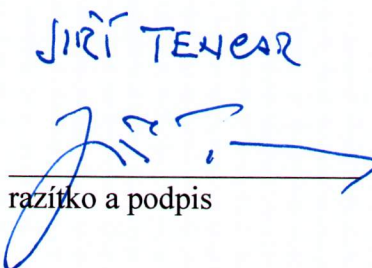 JIŘÍ TENCAR
Jiří T.
razítko a podpis